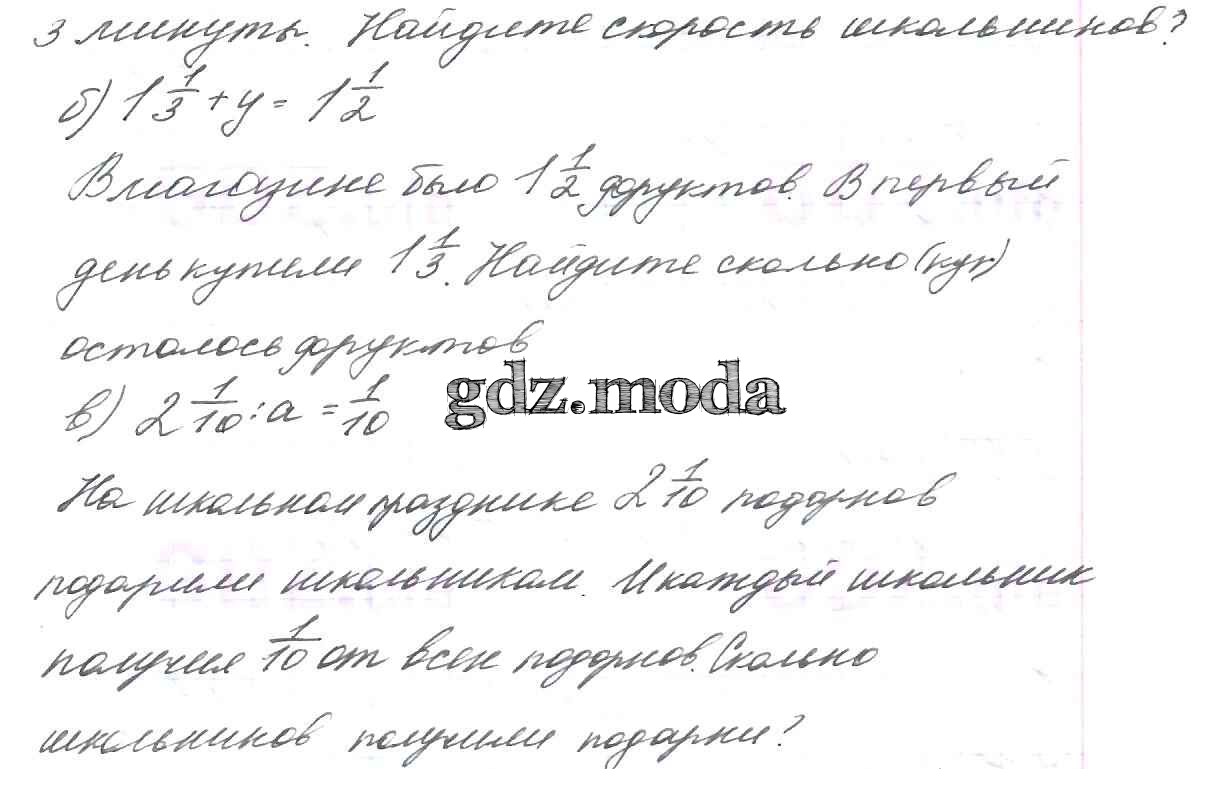 3 минуты. Найдите скорость школьников?
б) 1 1/3 + y = 1 1/2
В магазине было 1 1/2 фруктов. В первый
день купили 1 1/3. Найдите сколько (кук)
осталось фруктов
в) 2 1/10 : a = 1/10
gdz.moda
На школьном празднике 2 1/10 подарков
подарили школьникам. И каждый школьник
получил 1/10 от всех подарков. Сколько
школьников получили подарки?